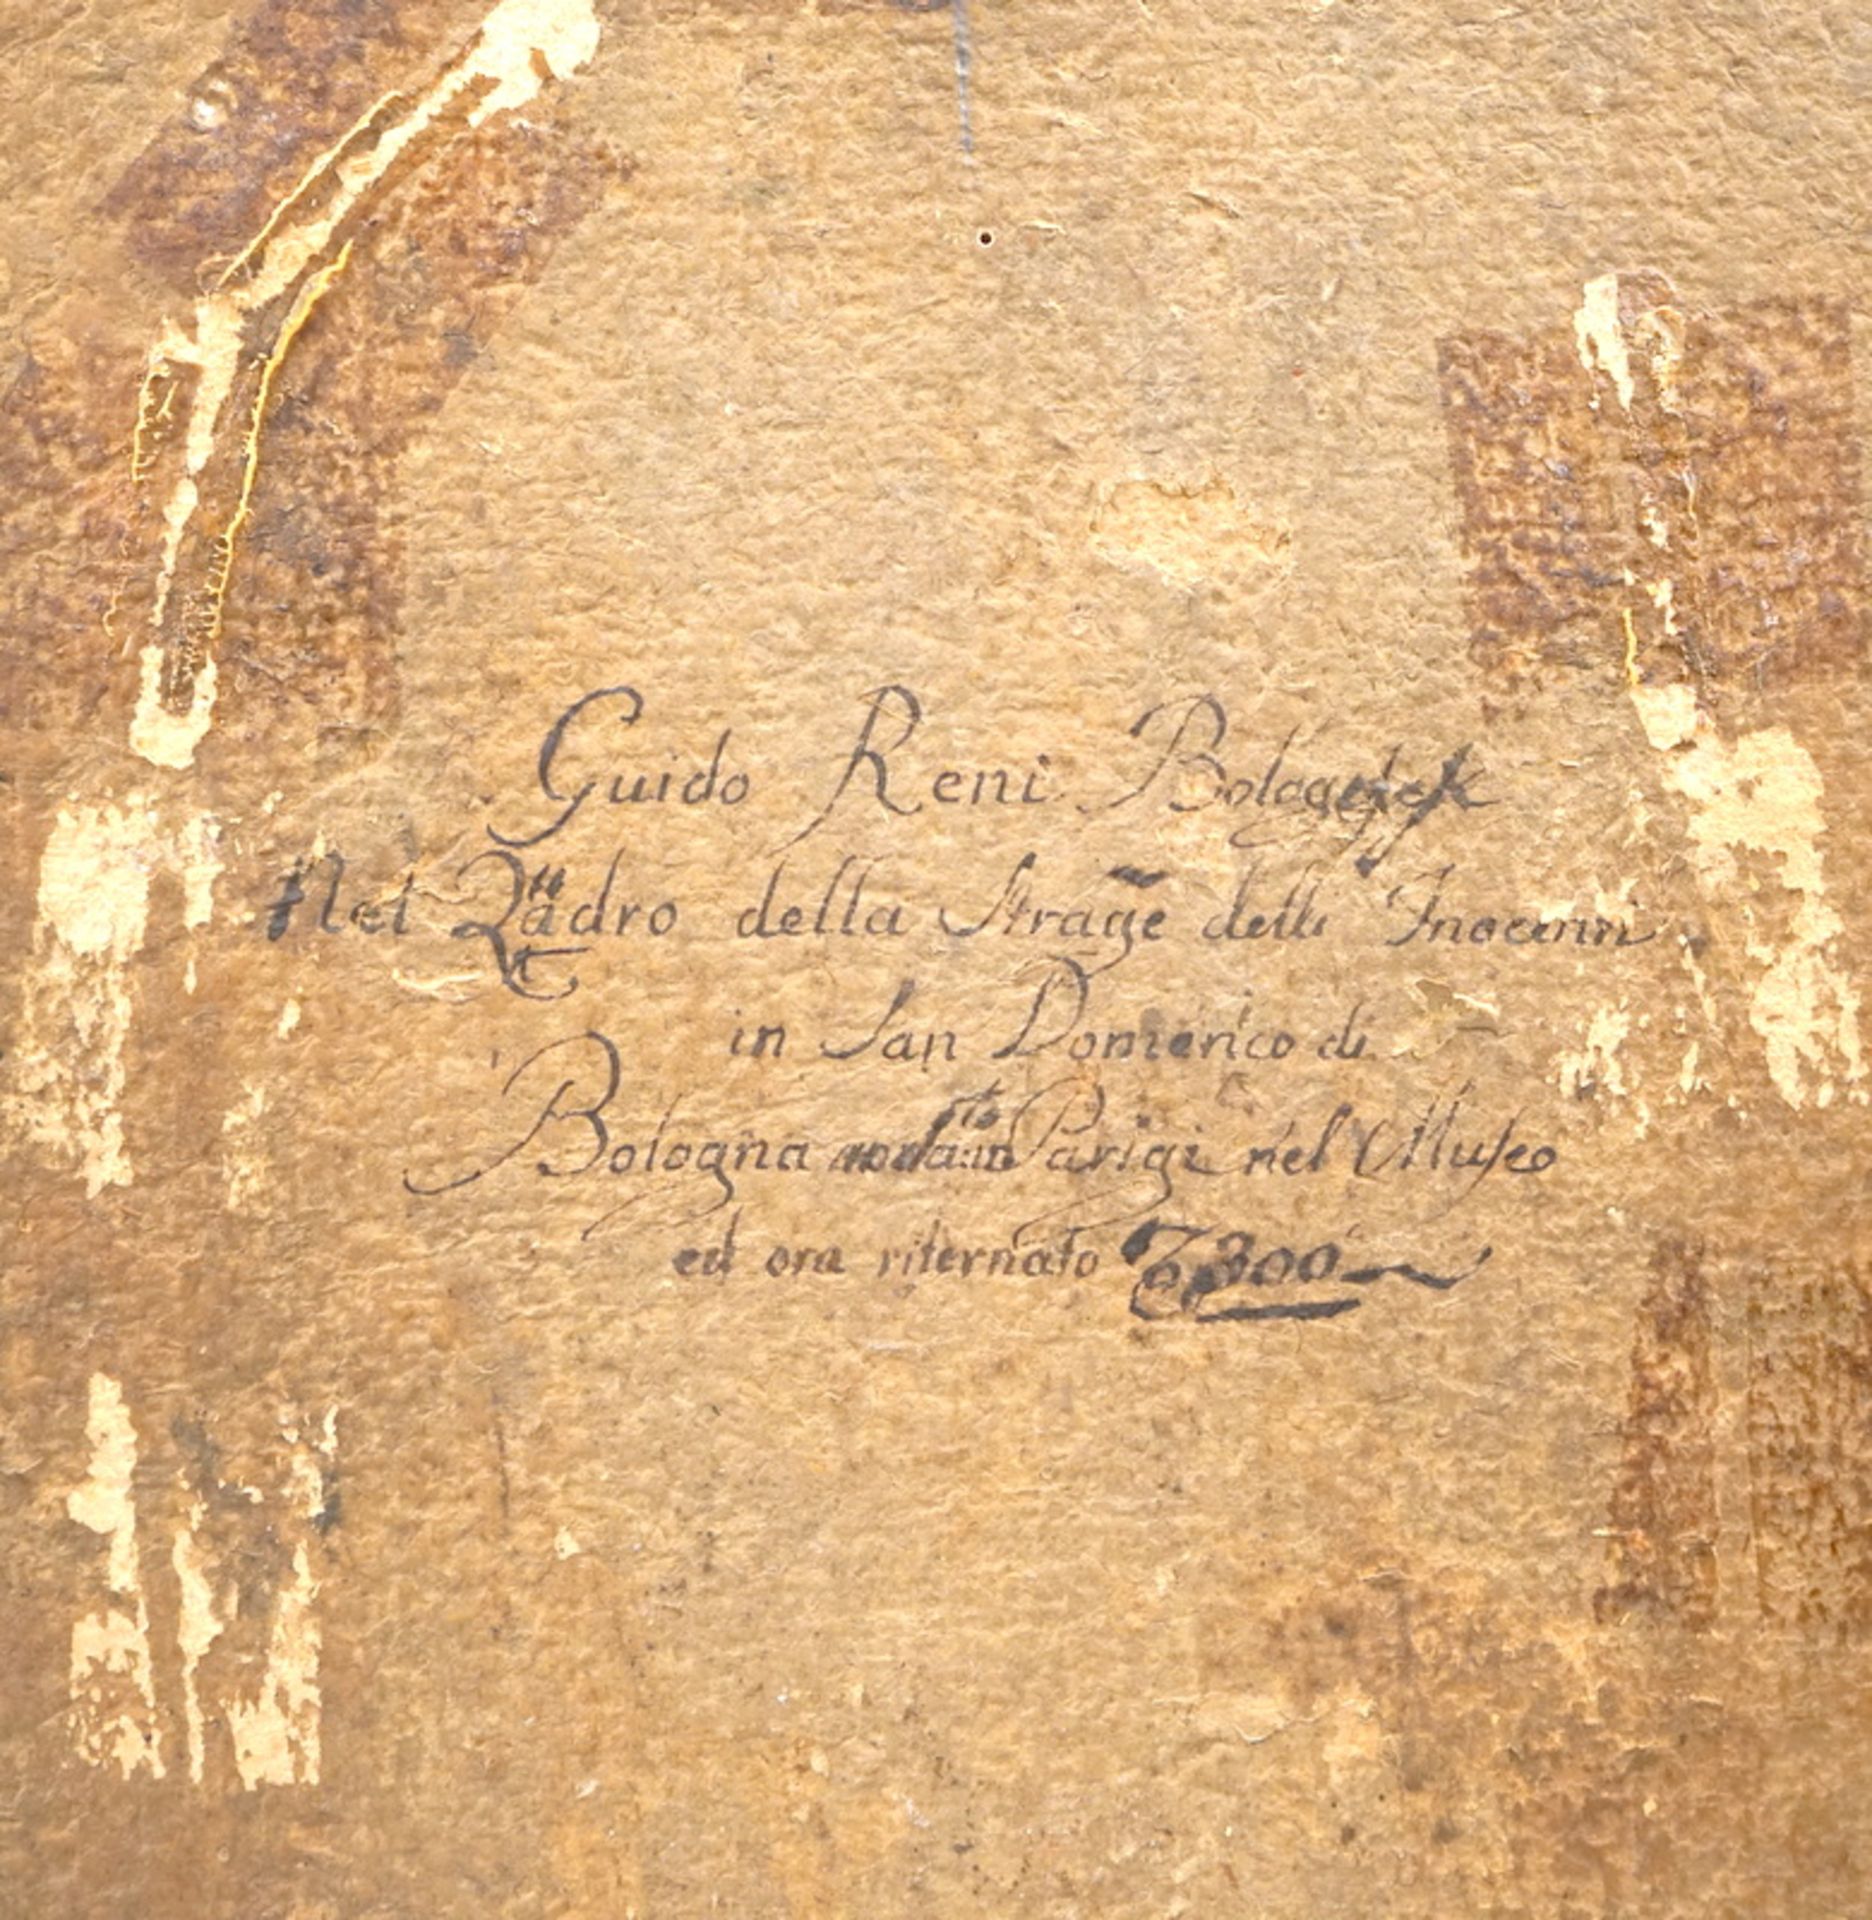 Guido Reni
Nel Quadro della Strage delli Inocenti
in San Domenico di
Bologna Parigi nel Museo
ed ora riternato